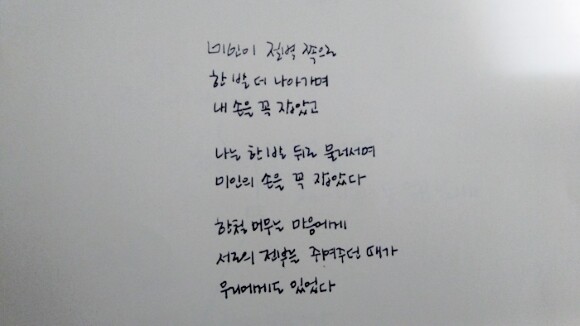 미인이 절벽 쪽으로
한 발 더 나아가며
내 손을 꼭 잡았고
나는 한 발 뒤로 물러서며
미인의 손을 꼭 잡았다
한철 머무는 마음에게
서로의 전부를 쥐여주던 때가
우리에게도 있었다